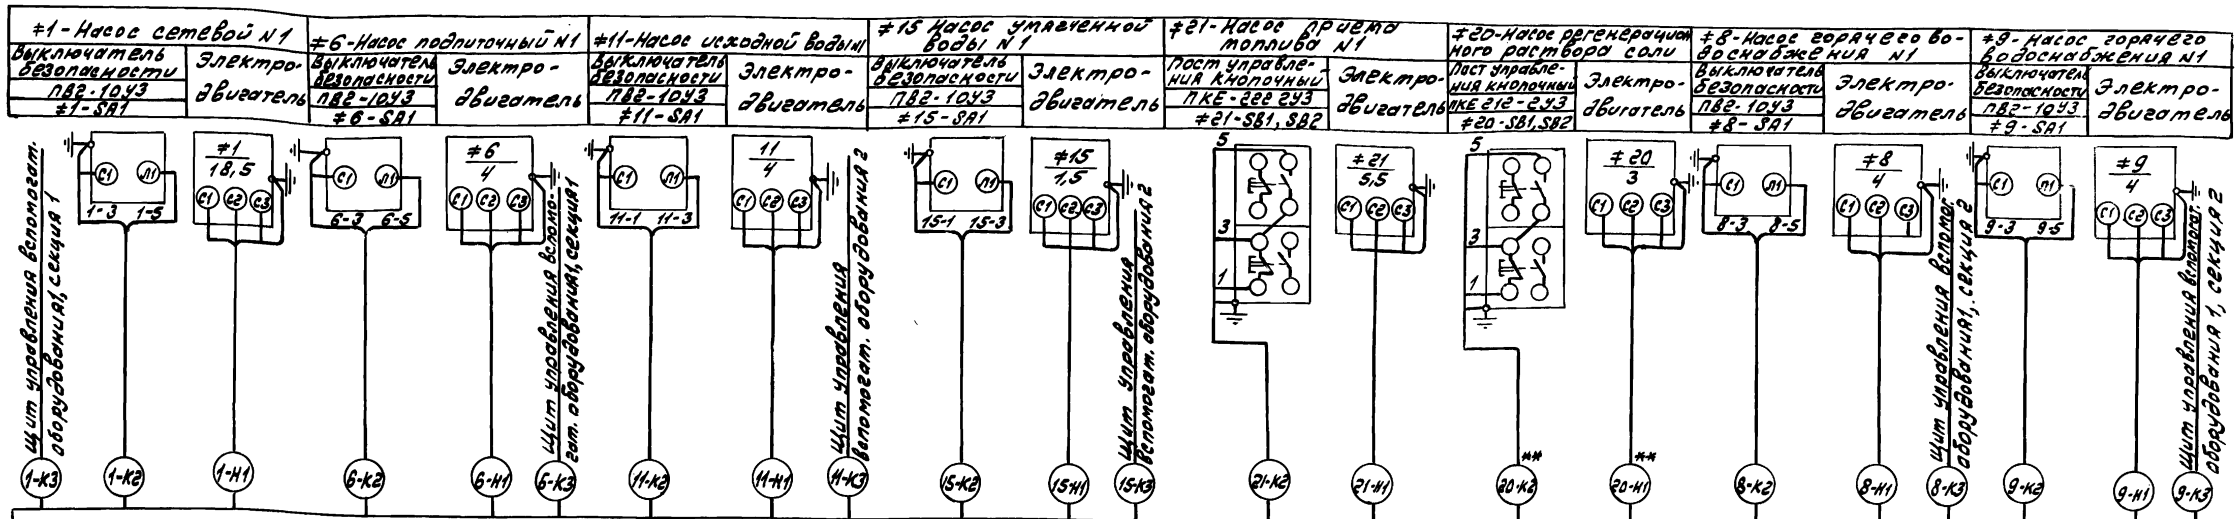 ≠1-Насос сетевой N1
Выключатель
безопасности
ПВ2-10У3
≠1-SA1
Электро-
двигатель
≠6-Насос подпиточный N1
Выключатель
безопасности
ПВ2-10У3
≠6-SA1
Электро-
двигатель
≠11-Насос исходной воды N1
Выключатель
безопасности
ПВ2-10У3
≠11-SA1
Электро-
двигатель
≠15 Насос умягченной
воды N1
Выключатель
безопасности
ПВ2-10У3
≠15-SA1
Электро-
двигатель
≠21-Насос приема
топлива N1
Пост управле-
ния кнопочный
ПКЕ-222 2У3
≠21-SB1, SB2
Электро-
двигатель
≠20-Насос регенерацион
ного раствора соли
Пост управле-
ния кнопочный
ПКЕ 212-2У3
≠20-SB1, SB2
Электро-
двигатель
≠8-Насос горячего во-
доснабжения N1
Выключатель
безопасности
ПВ2-10У3
≠8-SA1
Электро-
двигатель
≠9-Насос горячего
водоснабжения N1
Выключатель
безопасности
ПВ2-10У3
≠9-SA1
Электро-
двигатель
Щит управления вспомогат.
оборудования1, секция 1
С1 Л1
1-3 1-5
≠1
18,5
С1 С2 С3
С1 Л1
6-3 6-5
≠6
4
С1 С2 С3
Щит управления вспомо-
гат. оборудования1, секция1
С1 Л1
11-1 11-3
11
4
С1 С2 С3
Щит управления
вспомогат. оборудования 2
С1 Л1
15-1 15-3
≠15
1,5
С1 С2 С3
Щит управления
вспомогат. оборудования 2
5
3
1
≠21
5,5
С1 С2 С3
5
3
1
≠20
3
С1 С2 С3
С1 Л1
8-3 8-5
≠8
4
С1 С2 С3
Щит управления вспомог.
оборудования1, секция 2
С1 Л1
9-3 9-5
≠9
4
С1 С2 С3
Щит управления вспомогат.
оборудования 1, секция 2
1-К3
1-К2
1-Н1
6-К2
6-Н1
6-К3
11-К2
11-Н1
11-К3
15-К2
15-Н1
15-К3
21-К2
21-Н1
**
20-К2
**
20-Н1
8-К2
8-Н1
8-К3
9-К2
9-Н1
9-К3